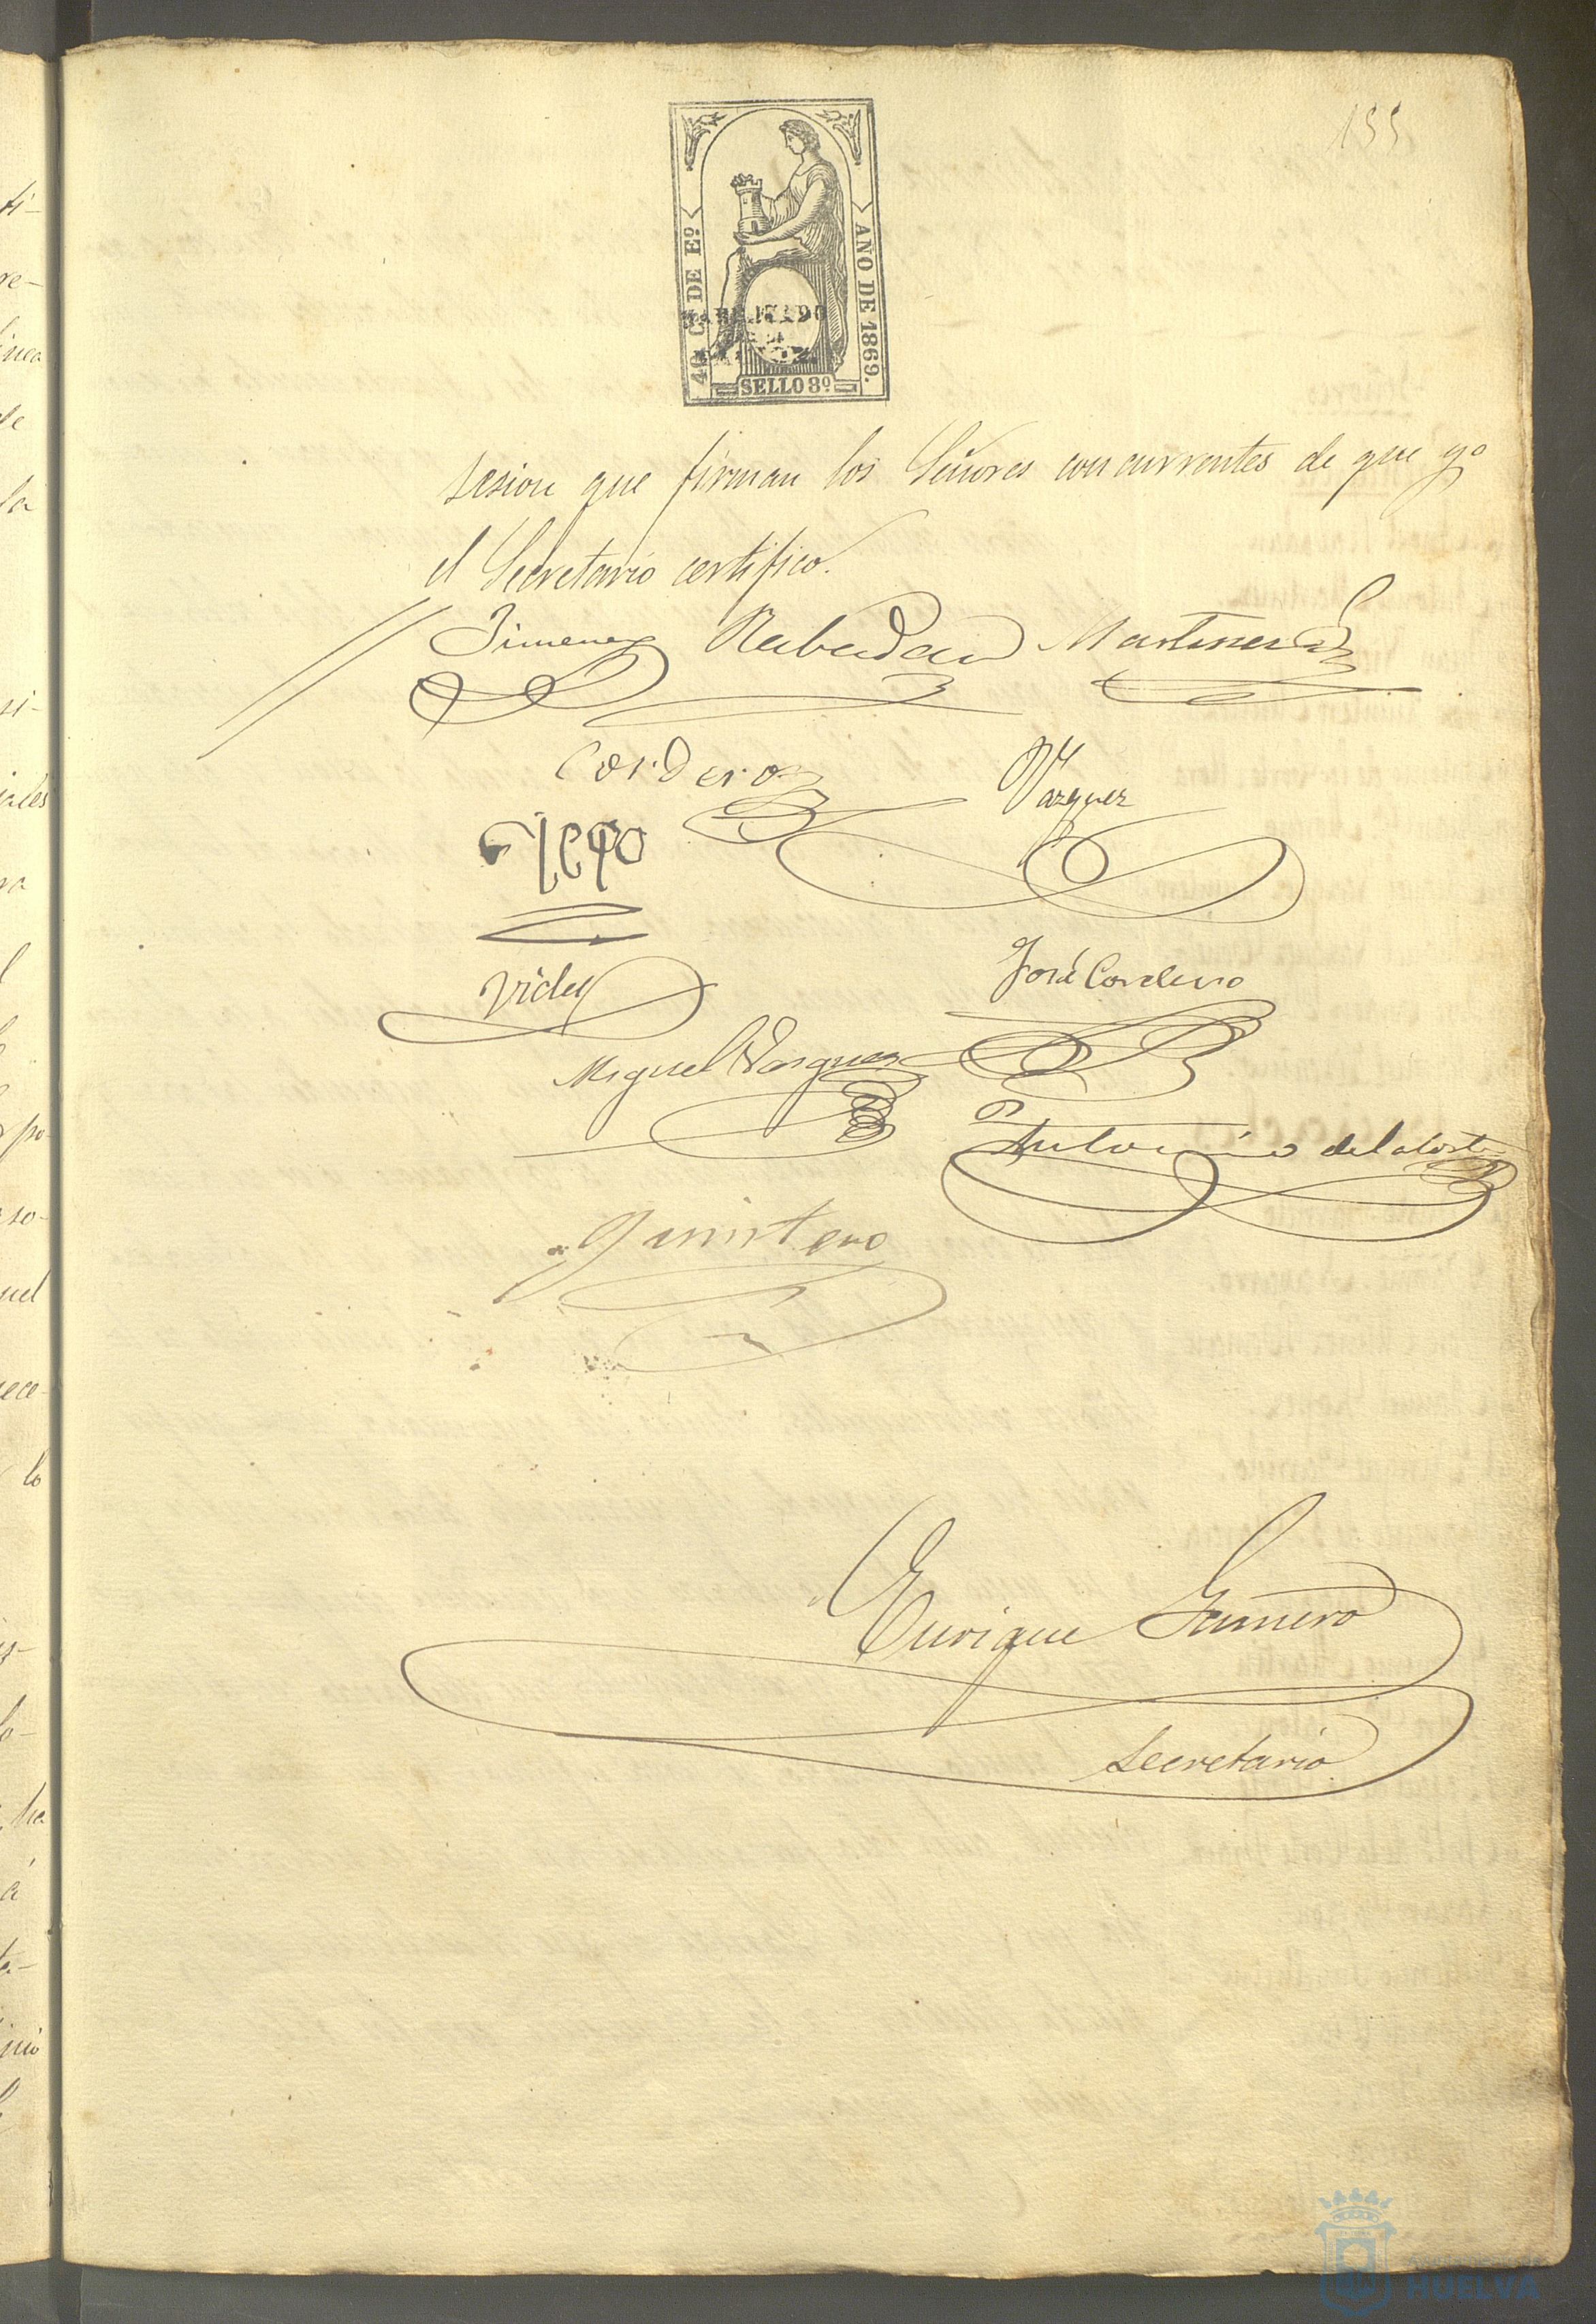 155
40 C. DE Eº
AÑO DE 1869.
HABILITADO
SELLO 8º
sesion que firman los Señores concurrentes de que yo
el Secretario certifico.
Jimenez Rabadan Martinez
Cordero Vazquez
Vides José Cordero
Miguel Vazquez
Antonio de la Corte
Quintero
Enrique Gamero
Secretario
HUELVA